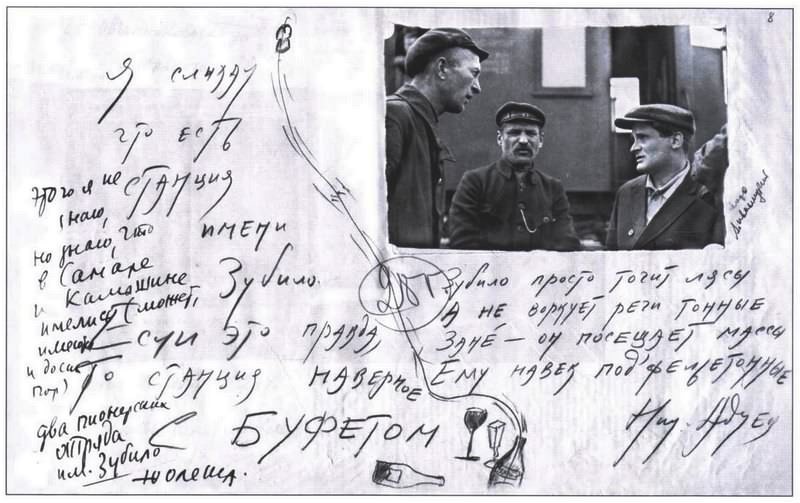 8
Я слыхал
что есть
станция
имени
Зубило.
Если это правда,
То станция наверное
С БУФЕТОМ
Этого я не
знаю,
но знаю, что
в Самаре
и Камышине
имелись (может,
и до сих
пор)
два пионерских
отряда
им. Зубило
Олеша.
Зубило просто точит лясы
А не воркует речи тонные
Зане́ — он посещает массы
Ему навек под'фельетонные
Ник. Адуев